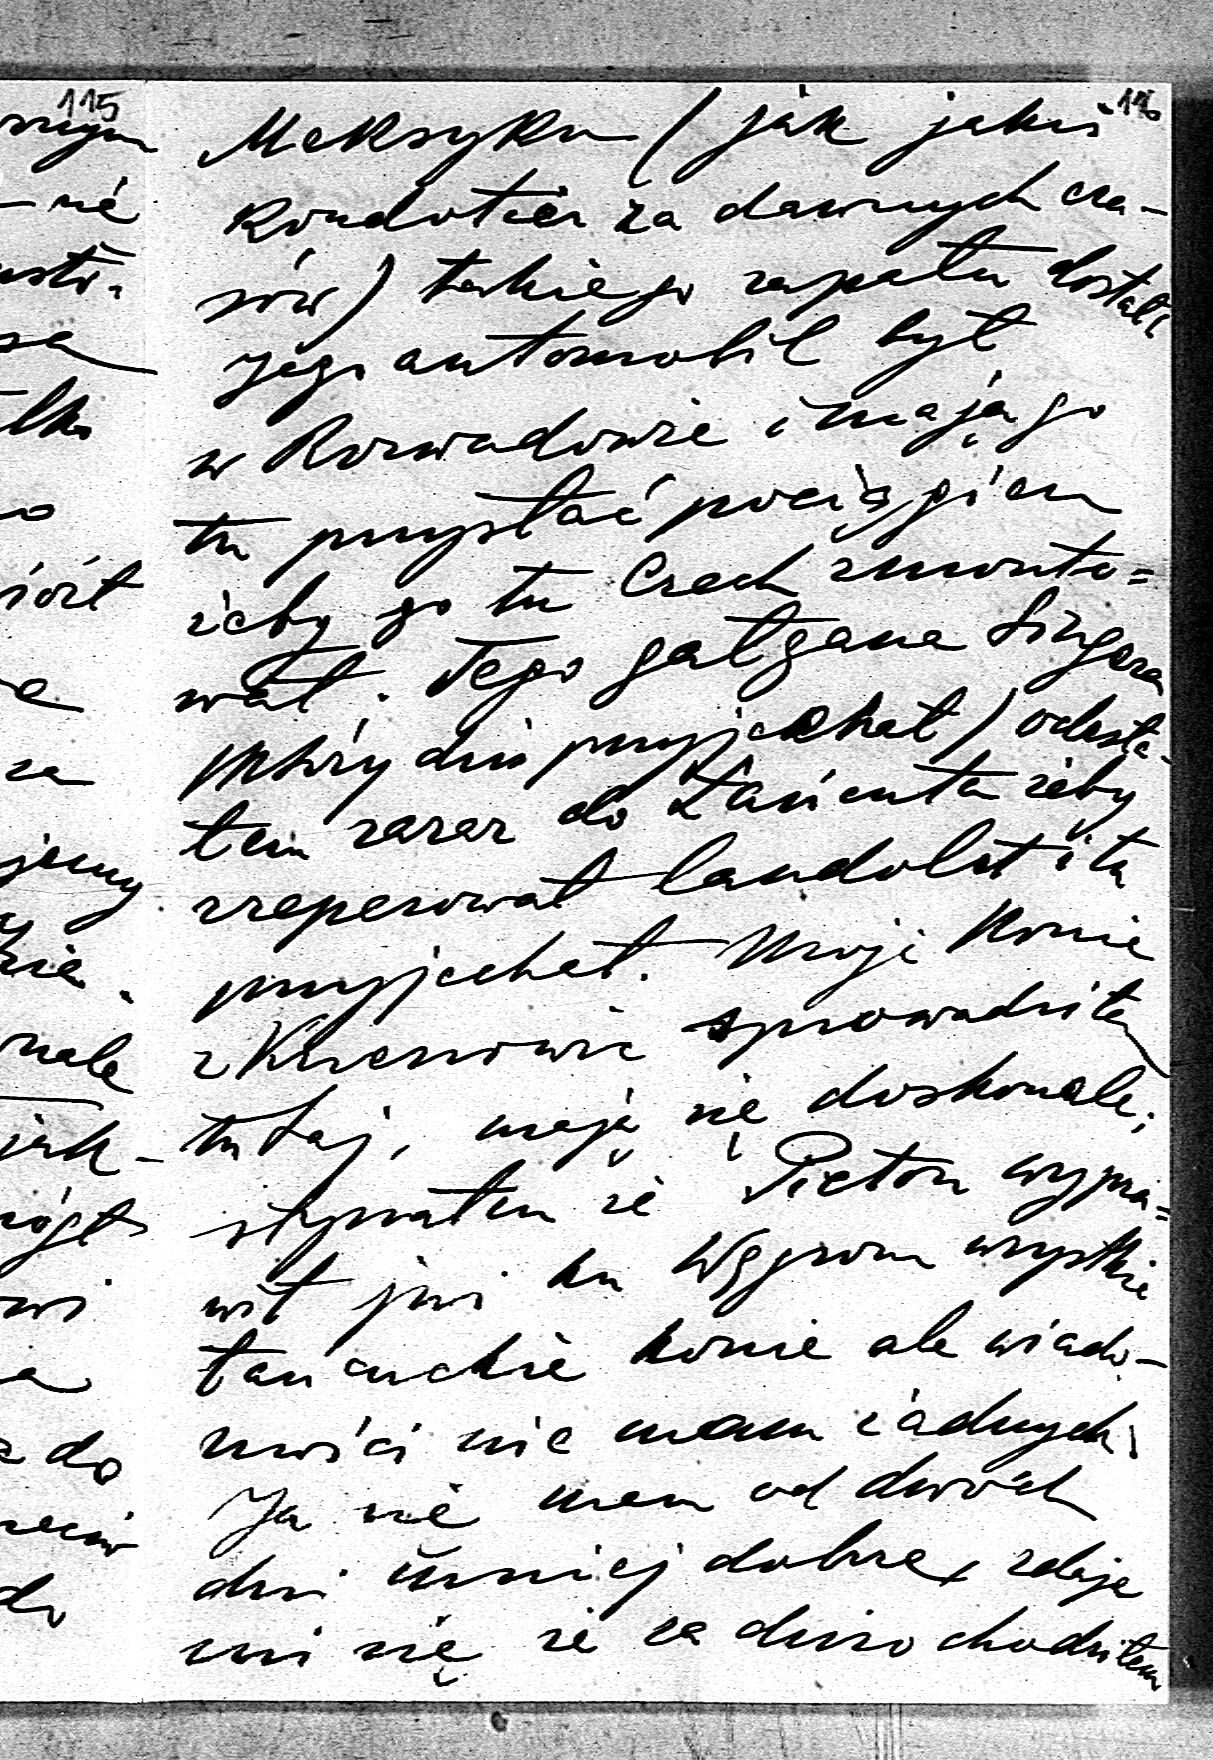 115
116
Meksyku (jak jakiś
Kondotier za dawnych cza-
sów) takiego zapału dostał
jego automobil był
w Rozwadowie i mają go
tu przysłać pociągiem
żeby go tu Czech zmonto=
wał. Tego gałgana Singera
który dziś przyjechał) odesła-
łem zaraz do Łańcuta żeby
zreperował landolet i tu
przyjechał. Moje Konie
z Krzenowic sprowadziłem
tutaj, mają się doskonale;
słyszałem że Picton wypra=
wił już ku Węgrom wszystkie
łańcuckie konie ale wiado-
mości nie mam żadnych.
Ja się mam od dwóch
dni mniej dobrze, zdaje
mi się że za dużo chodziłem
nie
sa
jemy
nale
jak-
mógł
do
do